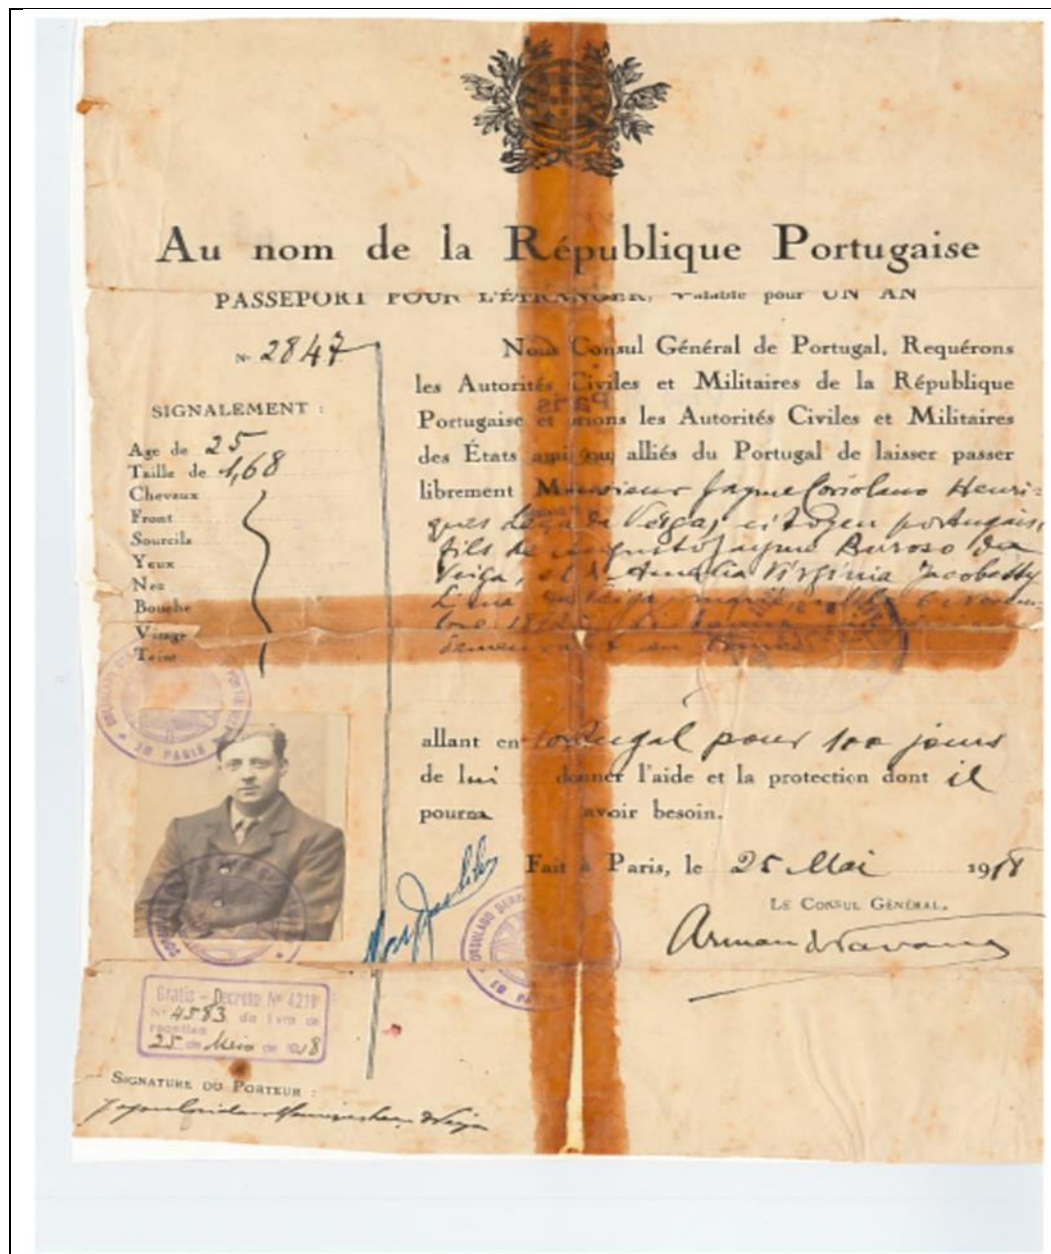 Au nom de la République Portugaise
PASSEPORT POUR L'ÉTRANGER, Valable pour UN AN
N° 2847
SIGNALEMENT :
Age de 25
Taille de 1,68
Cheveux
Front
Sourcils
Yeux
Nez
Bouche
Visage
Teint
Nous Consul Général de Portugal, Requérons
les Autorités Civiles et Militaires de la République
Portugaise et prions les Autorités Civiles et Militaires
des États amis ou alliés du Portugal de laisser passer
librement Monsieur Jayme Coriolano Henri-
ques Leça da Veiga, citoyen portugais,
fils de Augusto Jayme Barroso da
Veiga, et de Amelia Virginia Jacobetty
allant en Portugal pour 100 jours
de lui donner l'aide et la protection dont il
pourra avoir besoin.
Fait à Paris, le 25 Mai 1918
LE CONSUL GÉNÉRAL,
EM PARIS
Gratis - Decreto Nº 4219
Nº 4583 do livro de
receitas
25 de Maio de 1918
SIGNATURE DU PORTEUR :